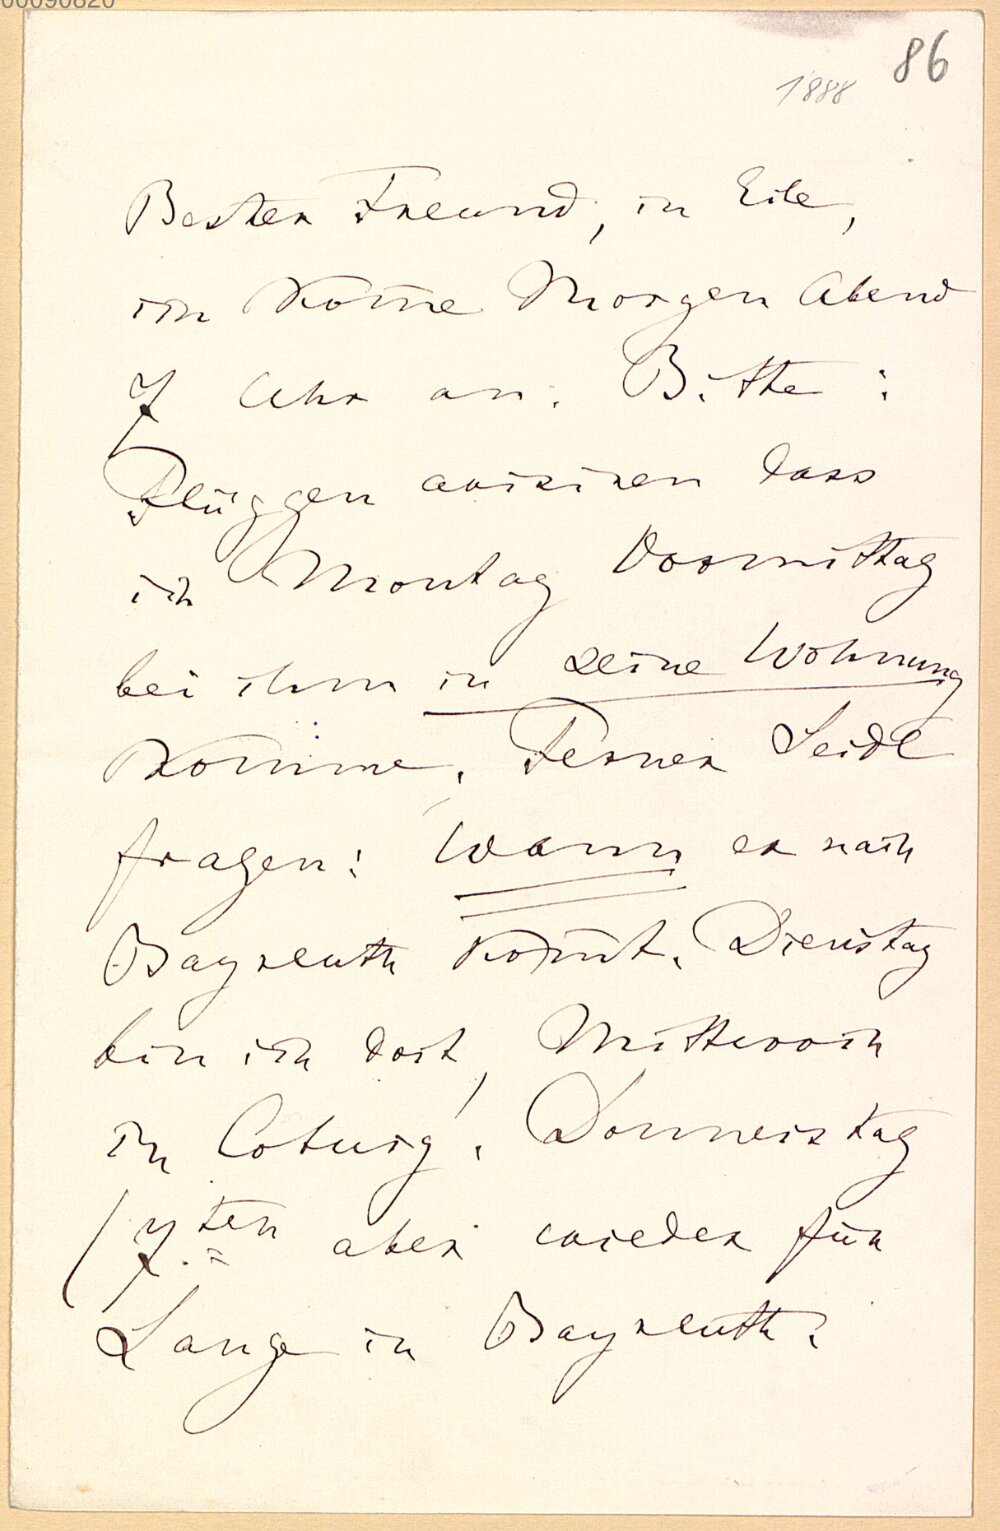 00090820
86
1888
Bester Freund, in Eile,
ich kom̄e Morgen Abend
7 Uhr an. Bitte:
Flüggen avisiren dass
ich Montag Vormittag
bei ihm in seine Wohnung
komme. Ferner Seidl
fragen: Wann er nach
Bayreuth kom̄t. Dienstag
bin ich dort, Mittwoch
in Coburg. Donnerstag
(7.ten aber wieder für
Lange in Bayreuth.